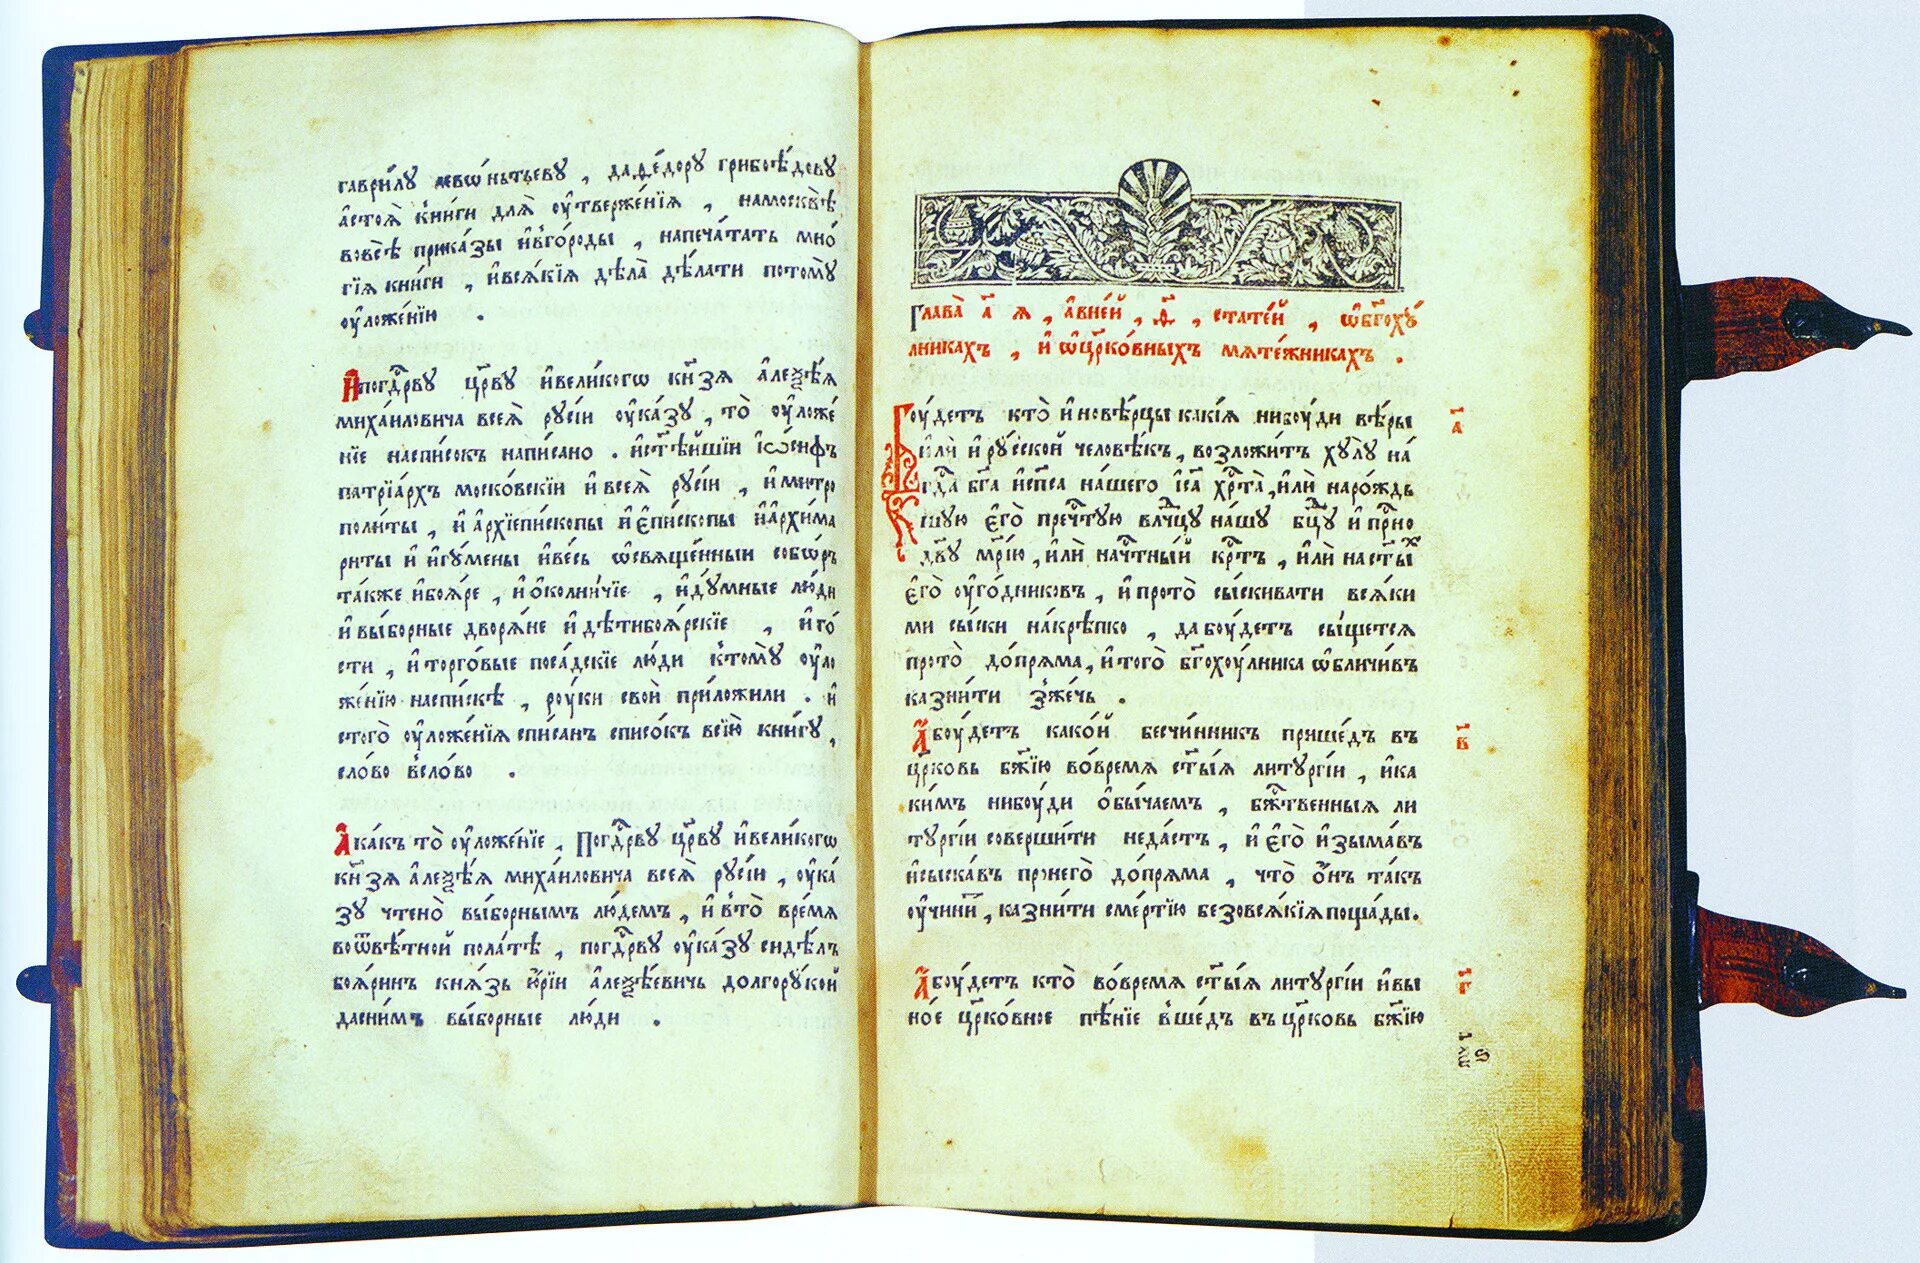 гаврїлꙋ леѡ́нтьевꙋ , даѳе́дорꙋ грибоѣ́довꙋ
а҆стоѧ̀ кни́ги длѧ̀ ᲂу҆твержє́нїѧ , намоскᲂвѣ̀
вовсѣ̀ прика́зы и҆вго́роды , напеча́тать мно́
гїѧ кни́ги , и҆всѧ́кїѧ дѣла̀ дѣ́лати потомꙋ̀
ᲂу҆ложе́нїю .
И҆погⷭ҇дрвꙋ цр҃вꙋ и҆вели́кого кн҃зѧ а҆леѯѣ́ѧ
миха́иловича всеѧ̀ рꙋсі́и ᲂу҆ка́зꙋ , то̀ ᲂу҆ложе́
нїе наспи́сокъ напи́сано . и҆ст҃ѣ́йшїи і҆ѡ́сифъ
патрїа́рхъ моско́вскїи и҆всеѧ̀ рꙋсі́и , и҆митро
поли́ты , и҆ а҆рхїепи́скопы и҆ е҆пи́скопы и҆ а҆рхима
ри́ты и҆ и҆гꙋ́мены и҆ве́сь ѡ҆свѧще́нныи собо́ръ
та́кже и҆боѧ́ре , и҆ ѻ҆ко́лничїе , и҆дꙋ́мные лю́ди
и҆ вы́борные дворѧ́не и҆ дѣ́тибоѧ́рскїе , и҆ го́
сти , и҆ торго́вые поса́дскїе лю́ди ктомꙋ̀ ᲂу҆ло
же́нїю наспи́скѣ , рꙋ́ки своѝ приложи́ли . и҆
стого̀ ᲂу҆ложе́нїѧ спи́санъ спи́сокъ всїю̀ кни́гꙋ ,
сло́во всло́во .
А҆ка́къ то̀ ᲂу҆ложе́нїе , Погⷭ҇дрвꙋ цр҃вꙋ и҆вели́кого
кн҃зѧ а҆леѯѣ́ѧ миха́иловича всеѧ̀ рꙋсі́и , ᲂу҆ка́
зꙋ чтено̀ вы́борнымъ лю́демъ , и҆ вто̀ вре́мѧ
воѿвѣ́тной пола́тѣ , погⷭ҇дрвꙋ ᲂу҆ка́зꙋ сидѣ́лъ
боѧ́ринъ кнѧ́зь ю҆́рїи а҆леѯѣ́евичь долгорꙋ́кой
дасни́мъ вы́борные лю́ди .
Глава̀ а҃ ѧ , а҆вне́й , ѳ҃ , стате́й , ѡ҆бг҃охꙋ́
лникахъ , и҆ ѡ҆цр҃ко́вныхъ мѧте́жникахъ .
Бꙋ́детъ кто̀ и҆новѣ́рцы какі́ѧ нибꙋ́ди вѣ́ры
и҆лѝ и҆ рꙋ́сской человѣ́къ , возложи́тъ хꙋлꙋ̀ на́
гдⷭ҇а бг҃а и҆спⷭ҇са на́шего і҆с҃а хрⷭ҇та̀ , и҆лѝ наро́ждь
шꙋю є҆го̀ пречⷭ҇тꙋю влⷣчцꙋ на́шꙋ бцⷣꙋ и҆ прⷭ҇но
дв҃ꙋ мр҃і́ю , и҆лѝ начⷭ҇тны́й крⷭ҇тъ , и҆лѝ наст҃ы́хъ
є҆го̀ ᲂу҆го́дниковъ , и҆ прото̀ сы́скивати всѧ́ки
ми сы́ски на́крѣпко , дабꙋ́детъ сы́щетсѧ
прото̀ до́прѧма , и҆ того̀ бг҃охꙋ́лника ѡ҆бличи́въ
казни́ти зже́чь .
А҆бꙋ́детъ како́й бесчи́нникъ прише́дъ въ
цр҃ковь бж҃їю во́времѧ ст҃ы́ѧ литꙋргі́и , и҆ка
ки́мъ нибꙋ́ди ѻ҆бы́чаемъ , бжⷭ҇твенныѧ ли
тꙋргі́и соверши́ти неда́стъ , и҆ є҆го̀ и҆зыма́въ
и҆сыска́въ пронего̀ до́прѧма , что̀ ѻ҆́нъ та́къ
ᲂу҆чини́тъ , казни́ти сме́ртїю безовсѧ́кїѧ поща́ды .
А҆бꙋ́детъ кто̀ во́времѧ ст҃ы́ѧ литꙋргі́и и҆вы
но́е цр҃ко́вное пѣ́нїе вше́дъ въ цр҃ковь бж҃їю
а҃
в҃
г҃